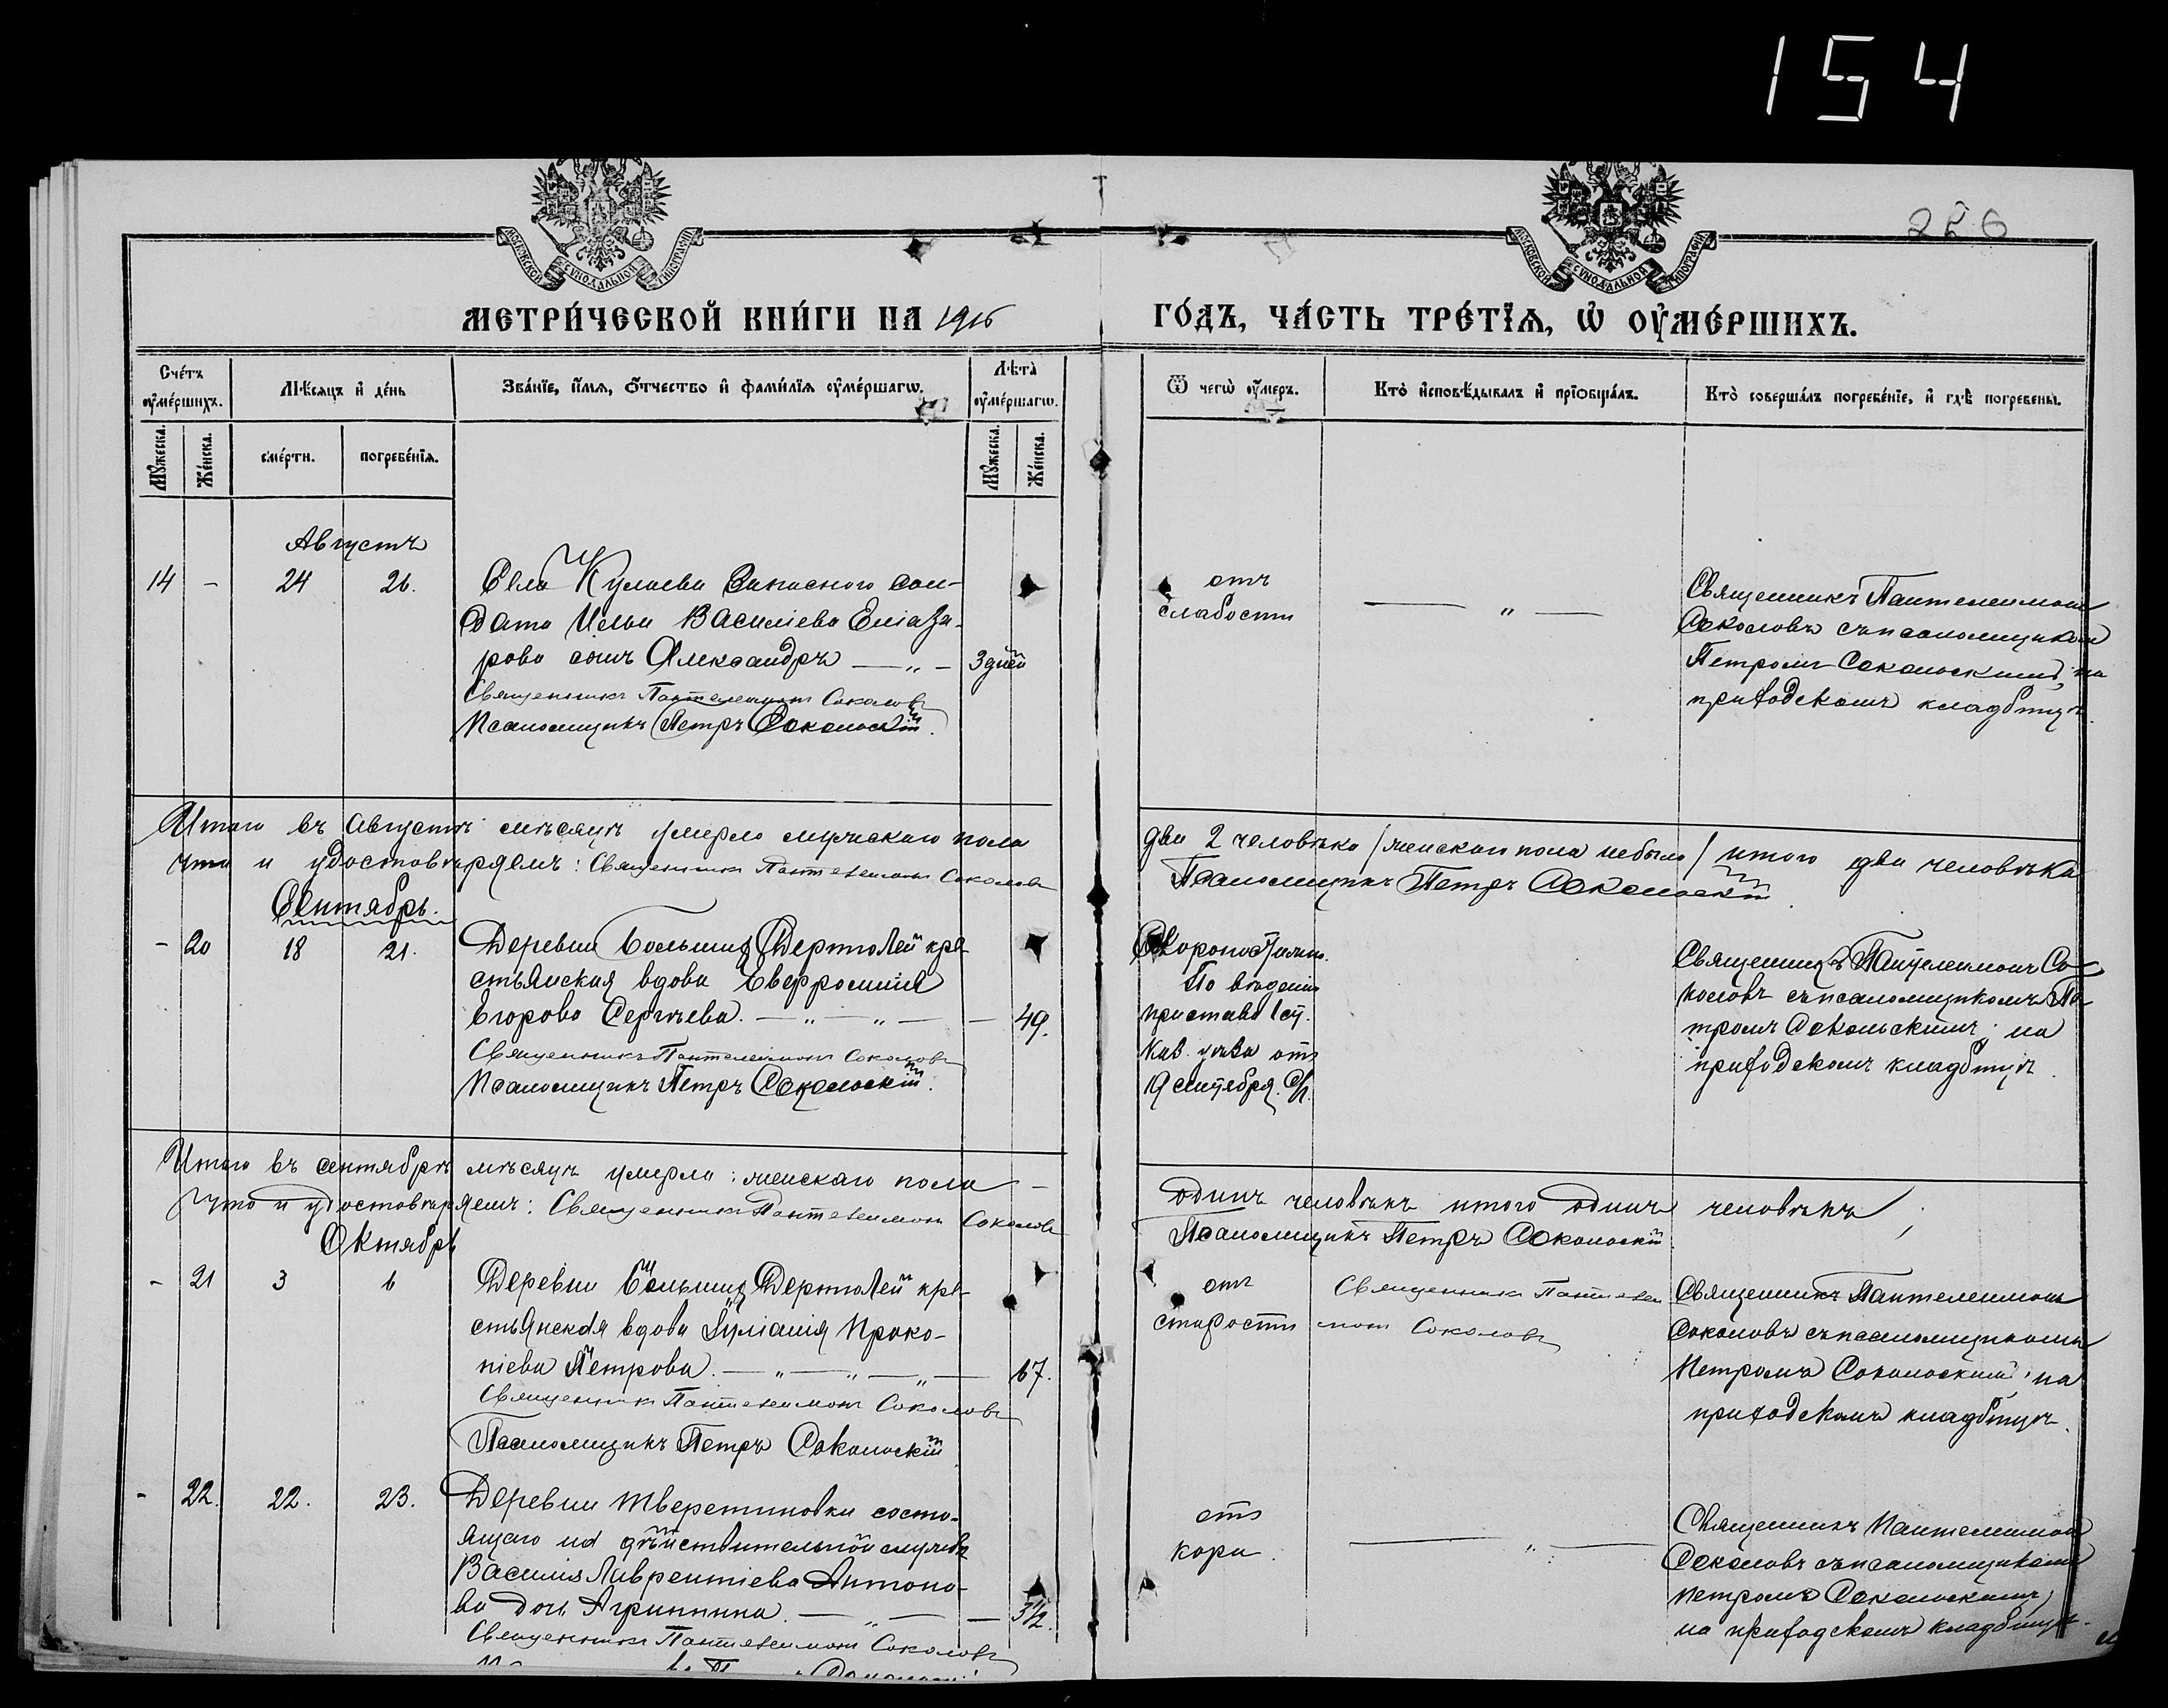 154
226
МОСКОВСКОЙ СѴНОДАЛЬНОЙ ТИПОГРАФІИ
МОСКОВСКОЙ СѴНОДАЛЬНОЙ ТИПОГРАФІИ
МЕТРИ́ЧЕСКОЙ КНИ́ГИ НА 1916 ГО́ДЪ, ЧА́СТЬ ТРЕ́ТЇѦ, Ѡ҆ ОУ҆МЕ́РШИХЪ.
Сче́тъ оу҆ме́ршихъ.
Мѣ́сяцъ и҆ де́нь
Зва́нїе, и҆́мѧ, ѻ҆́тчество и҆ фами́лїѧ оу҆ме́ршагѡ.
Лѣ̑та̀ оу҆ме́ршагѡ.
Ѿ чегѡ̀ оу҆́меръ.
Кто̀ и҆сповѣ́дывалъ и҆ прїѡбща́лъ.
Кто̀ соверша́лъ погребе́нїе, и҆ гдѣ̀ погребены̀.
Мꙋ́жеска.
Же́нска.
сме́рти.
погребе́нїѧ.
Мꙋ́жеска.
Же́нска.
Августъ
14 - 24 26. Села Кулаева Запаснаго сол-
дата Ильи Василіева Еліаза-
рова сынъ Александръ — „ — 3 дней
Священникъ Пантелеимонъ Соколовъ
Псаломщикъ Петръ Сокольскій.
отъ
слабости
— „ —
Священникъ Пантелеимонъ
Соколовъ съ псаломщикомъ
Петромъ Сокольскимъ, на
приходскомъ кладбищѣ.
Итого въ Августѣ мѣсяцѣ умерло мужскаго пола два 2 человѣка / женскаго пола небыло / итого два человѣка
что и удостовѣряемъ: Священникъ Пантелеимонъ Соколовъ Псаломщикъ Петръ Сокольскій.
Сентябрь.
- 20 18 21. Деревни Большихъ Дертюлей кре-
стьянская вдова Евфросинія
Егорова Сергѣева. — „ — „ — — 49.
Священникъ Пантелеимонъ Соколовъ
Псаломщикъ Петръ Сокольскій.
Скоропостижно.
По
пристава 1 ст.
Каз. уѣзда отъ
19 сентября.
Священникъ Пантелеимонъ Со-
коловъ съ псаломщикомъ Пе-
тромъ Сокольскимъ; на
приходскомъ кладбищѣ.
Итого въ сентябрѣ мѣсяцѣ умерло: женскаго пола — одинъ человѣкъ итого одинъ человѣкъ;
Что и удостовѣряемъ: Священникъ Пантелеимонъ Соколовъ Псаломщикъ Петръ Сокольскій.
Октябрь
- 21 3 6 Деревни Большихъ Дертюлей кре-
стьянская вдова Іуліанія Проко-
піева Петрова. — „ — „ — „ — 67.
Священникъ Пантелеимонъ Соколовъ
Псаломщикъ Петръ Сокольскій
отъ
старости
Священникъ Пантелеи-
монъ Соколовъ
Священникъ Пантелеимонъ
Соколовъ съ псаломщикомъ
Петромъ Сокольскимъ; на
приходскомъ кладбищѣ.
- 22. 22. 23. Деревни Тверетиновки состо-
ящаго на дѣйствительной службѣ
Василія Лаврентіева Антоно-
ва дочь Агриппина. — „ — — 3½.
Священникъ Пантелеимонъ Соколовъ
отъ
кори.
— „ —
Священникъ Пантелеимонъ
Соколовъ съ псаломщикомъ
Петромъ Сокольскимъ,
на приходскомъ кладбищѣ.